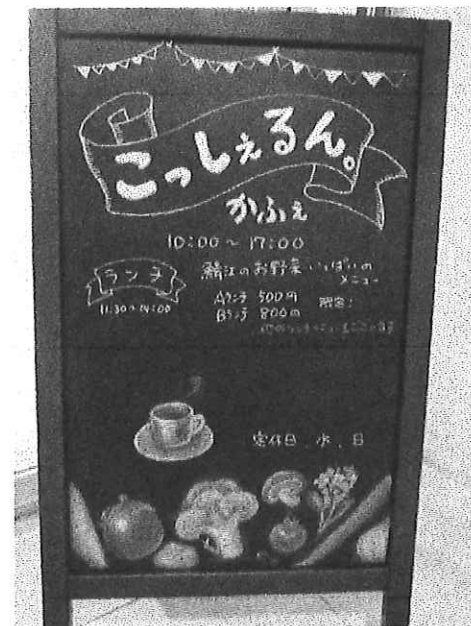 こっしぇるん。
かふぇ
10:00～17:00
ランチ
11:30～14:00
鯖江のお野菜いっぱいの
メニュー
Aランチ 500円
Bランチ 800円
限定!
定休日、水、日